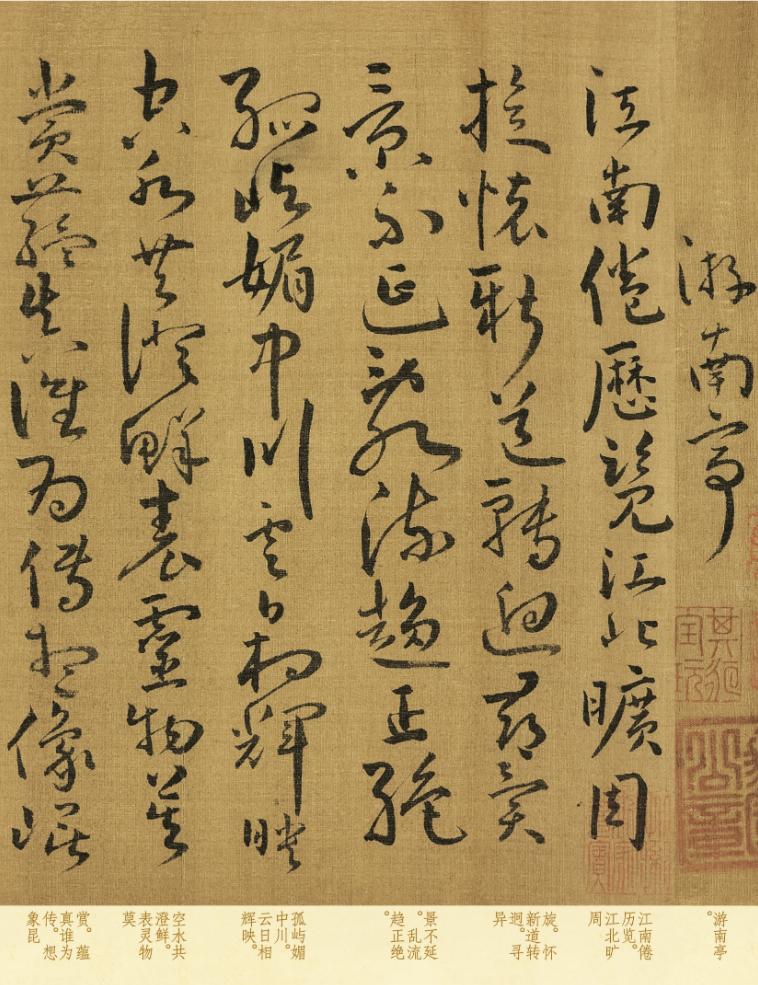 游南亭
江南倦歷覽江北曠周
旋懷新道轉迥尋異
景不延亂流趨正絕
孤嶼媚中川雲日相輝映
空水共澄鮮表靈物莫
賞蘊真誰為傳想像崐
游南亭
。
江南倦
历览。
江北旷
周
旋。怀
新道转
迥。寻
异
景不延
。乱流
趋正绝
。
孤屿媚
中川。
云日相
辉映。
空水共
澄鲜。
表灵物
莫
赏。蕴
真谁为
传。想
象昆